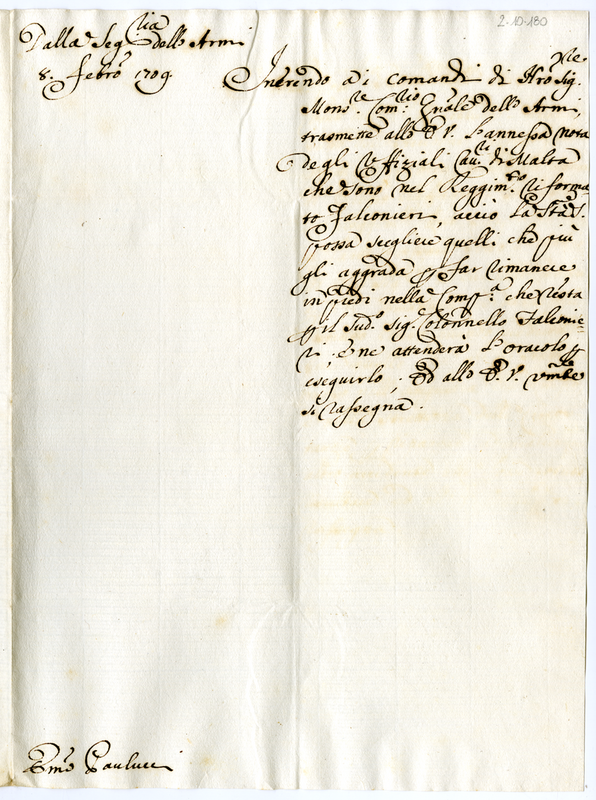 2-10-180
Dalla Seg.ria delle Armi
8. Febro 1709.
Inerendo ai comandi di Nro Sig.re
Mons.re Com.rio Gñale delle Armi,
trasmette allo E. V. l'annessa nota
degli Uffiziali Cau.ri di Malta
che sono nel Reggim.to riforma
to Falconieri, acciò la
possa scegliere quelli che più
gli aggrada p far rimanere
in piedi nella Comp.a che resta
p il Sud.o Sig. Colonnello Falconie=
ri, e ne attenderà l'oracolo p
eseguirlo; Ed allo E. V. umte
si rassegna.
Emo Paulucci